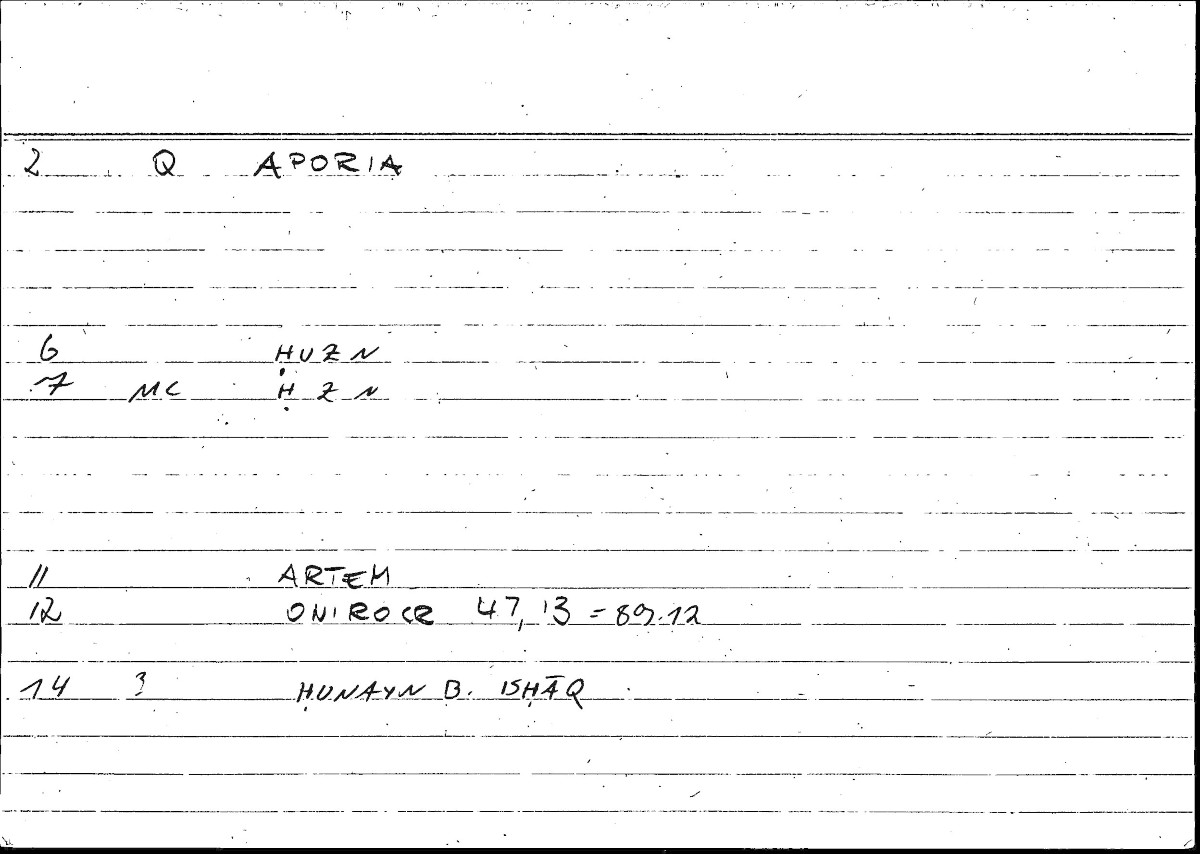 2 Q APORIA
6 ḤUZN
7 MC ḤZN
11 ARTEM
12 ONIROCR 47, 13 = 89.12
14 ? ḤUNAYN B. ISḤĀQ